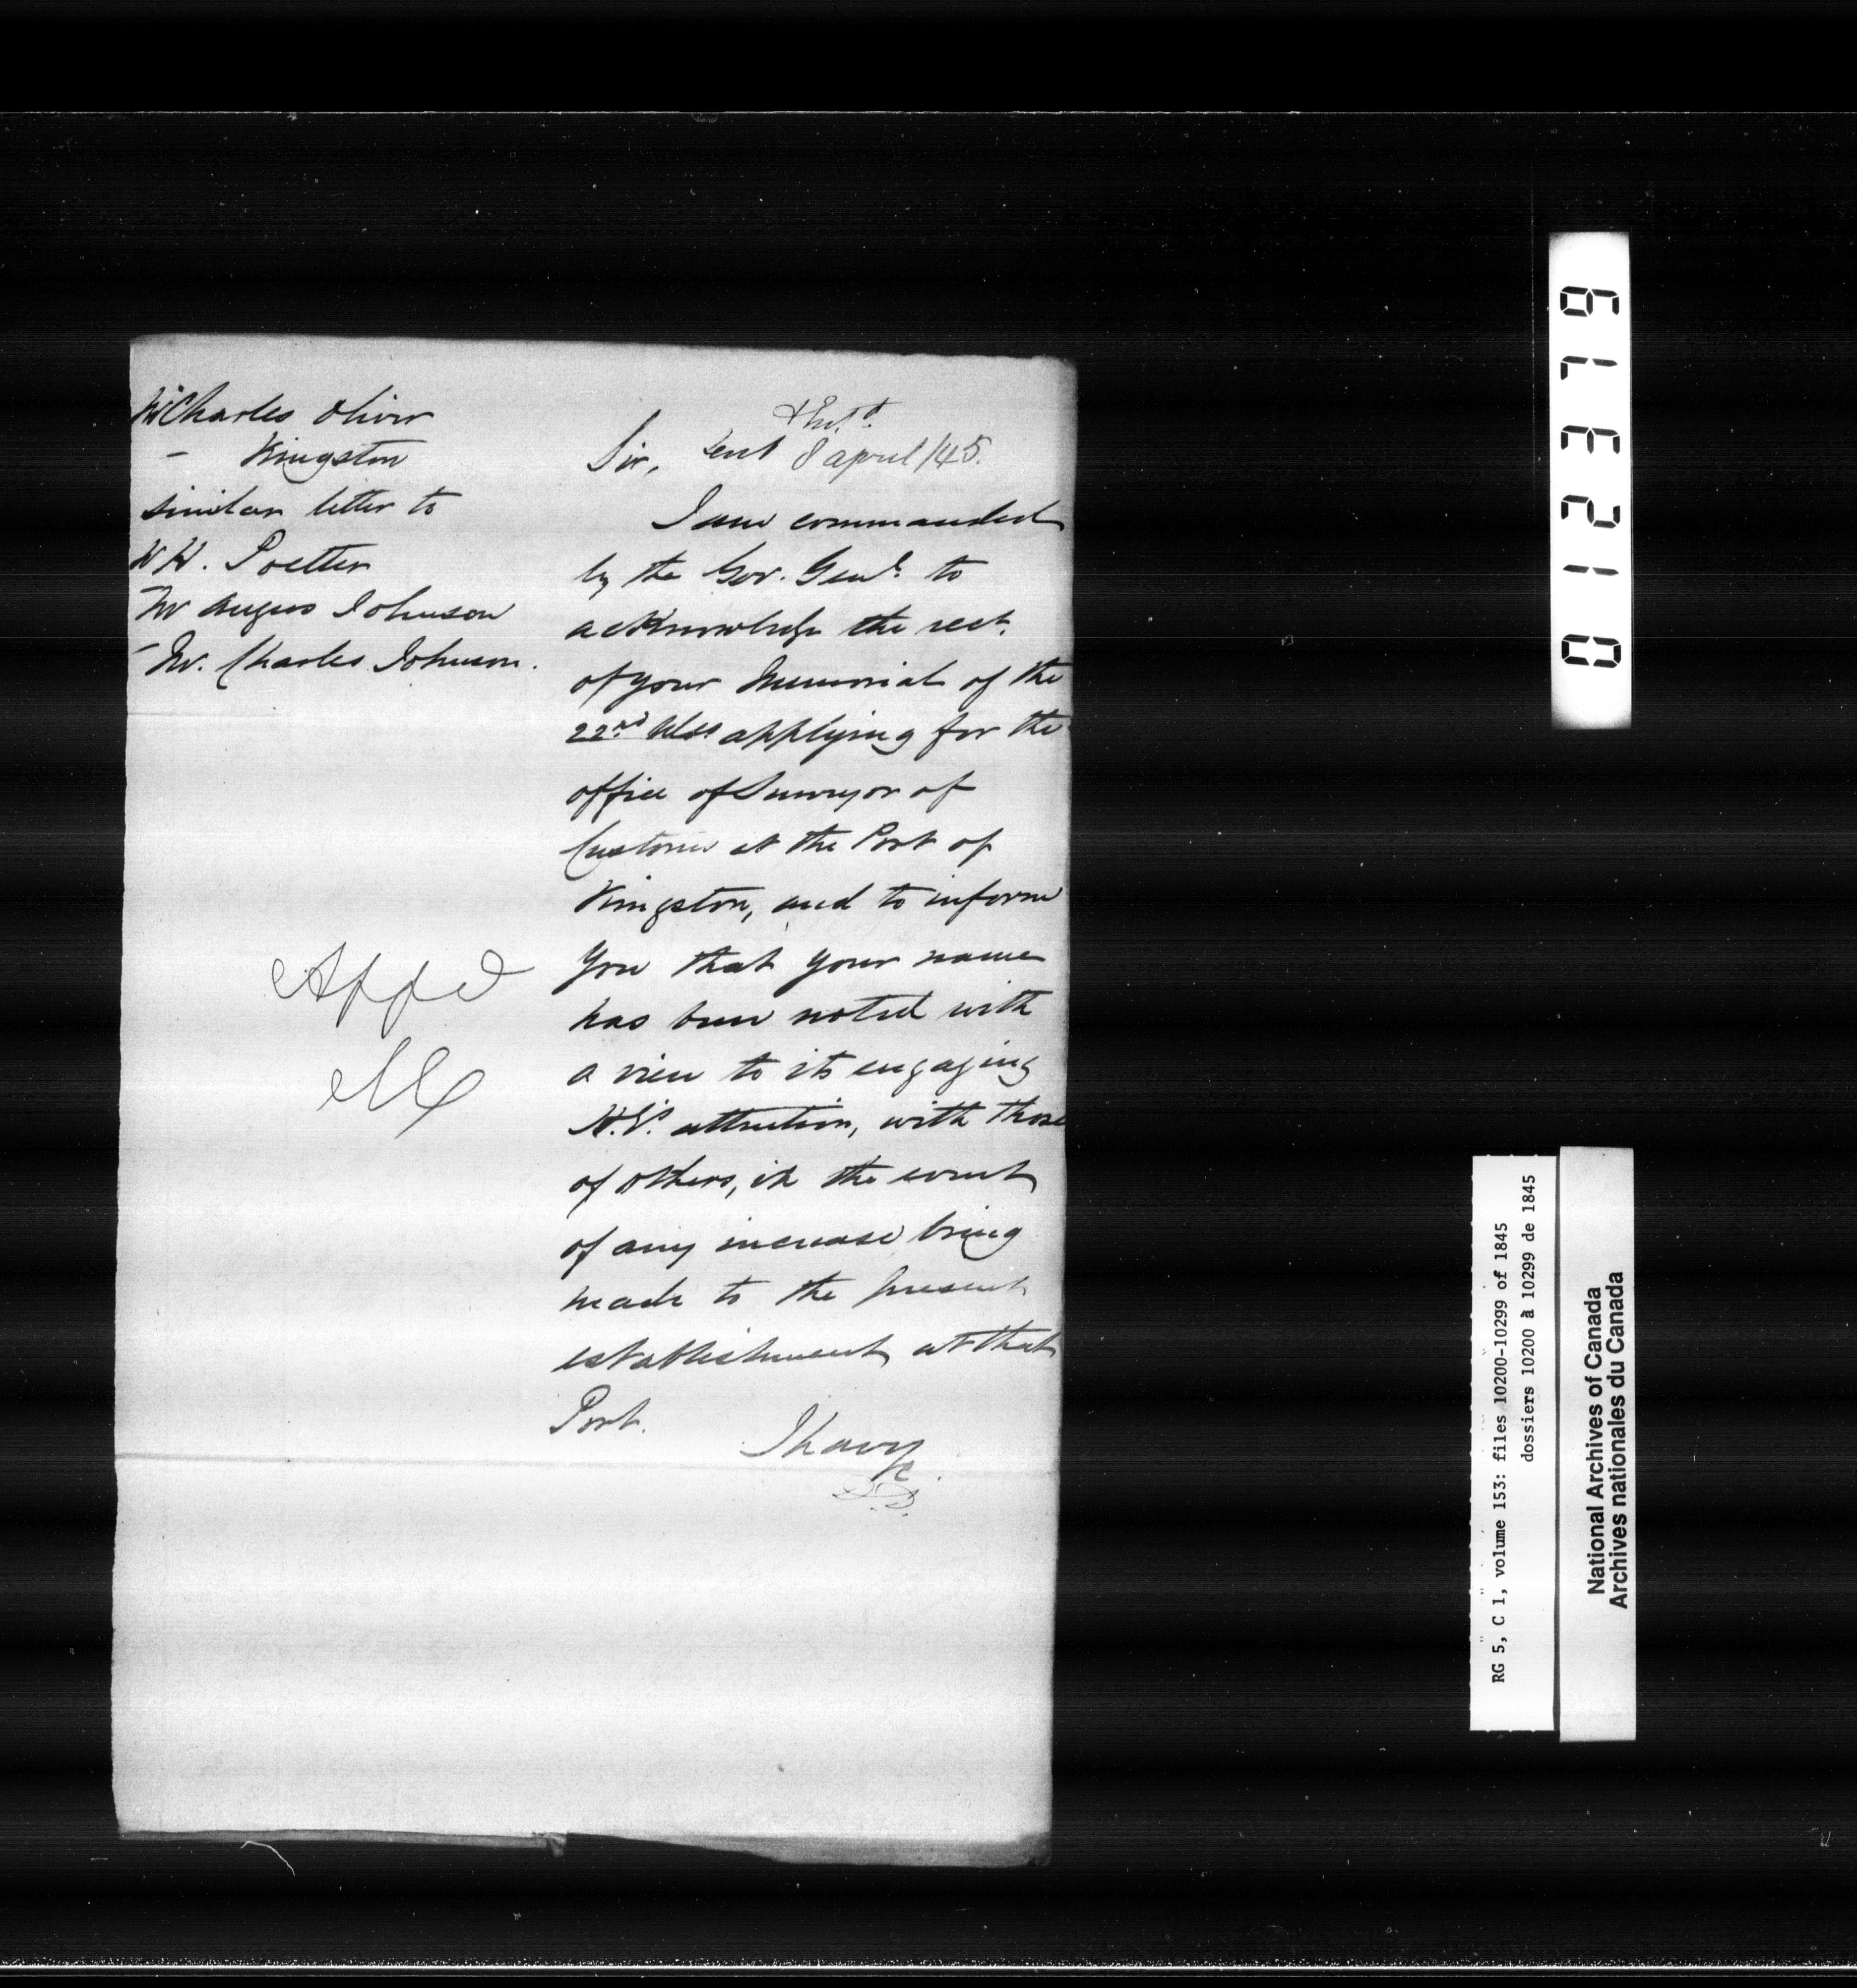 Mr Charles Oliver
- Kingston
similar letter to
W H. Poetter
Mr Angus Johnson
- Mr. Charles Johnson.
Appd
& Ent.d
Sir, Sent 8 april /45.
I am commanded
by the Gov. Genl. to
acknowledge the rect.
of your Memorial of the
22nd applying for the
office of Surveyor of
Customs at the Port of
Kingston, and to inform
you that your name
has been noted with
a view to its engaging
H.E's. attention, with those
of others, in the event
of any increase being
made to the present
establishment at that
Port.
I have
&c.
012376
RG 5, C 1, volume 153: files 10200-10299 of 1845
dossiers 10200 à 10299 de 1845
National Archives of Canada
Archives nationales du Canada